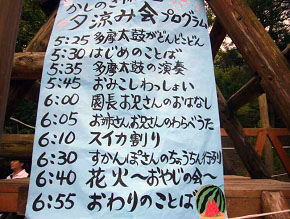 夕涼み会プログラム
5:25 多摩太鼓がどんどこどん
5:30 はじめのことば
5:35 多摩太鼓の演奏
5:45 おみこしわっしょい
6:00 園長お兄さんのおはなし
6:05 お姉さんお兄さんのわらべうた
6:10 スイカ割り
6:30 すかんぽさんのちょうちん行列
6:40 花火〜おやじの会〜
6:55 おわりのことば